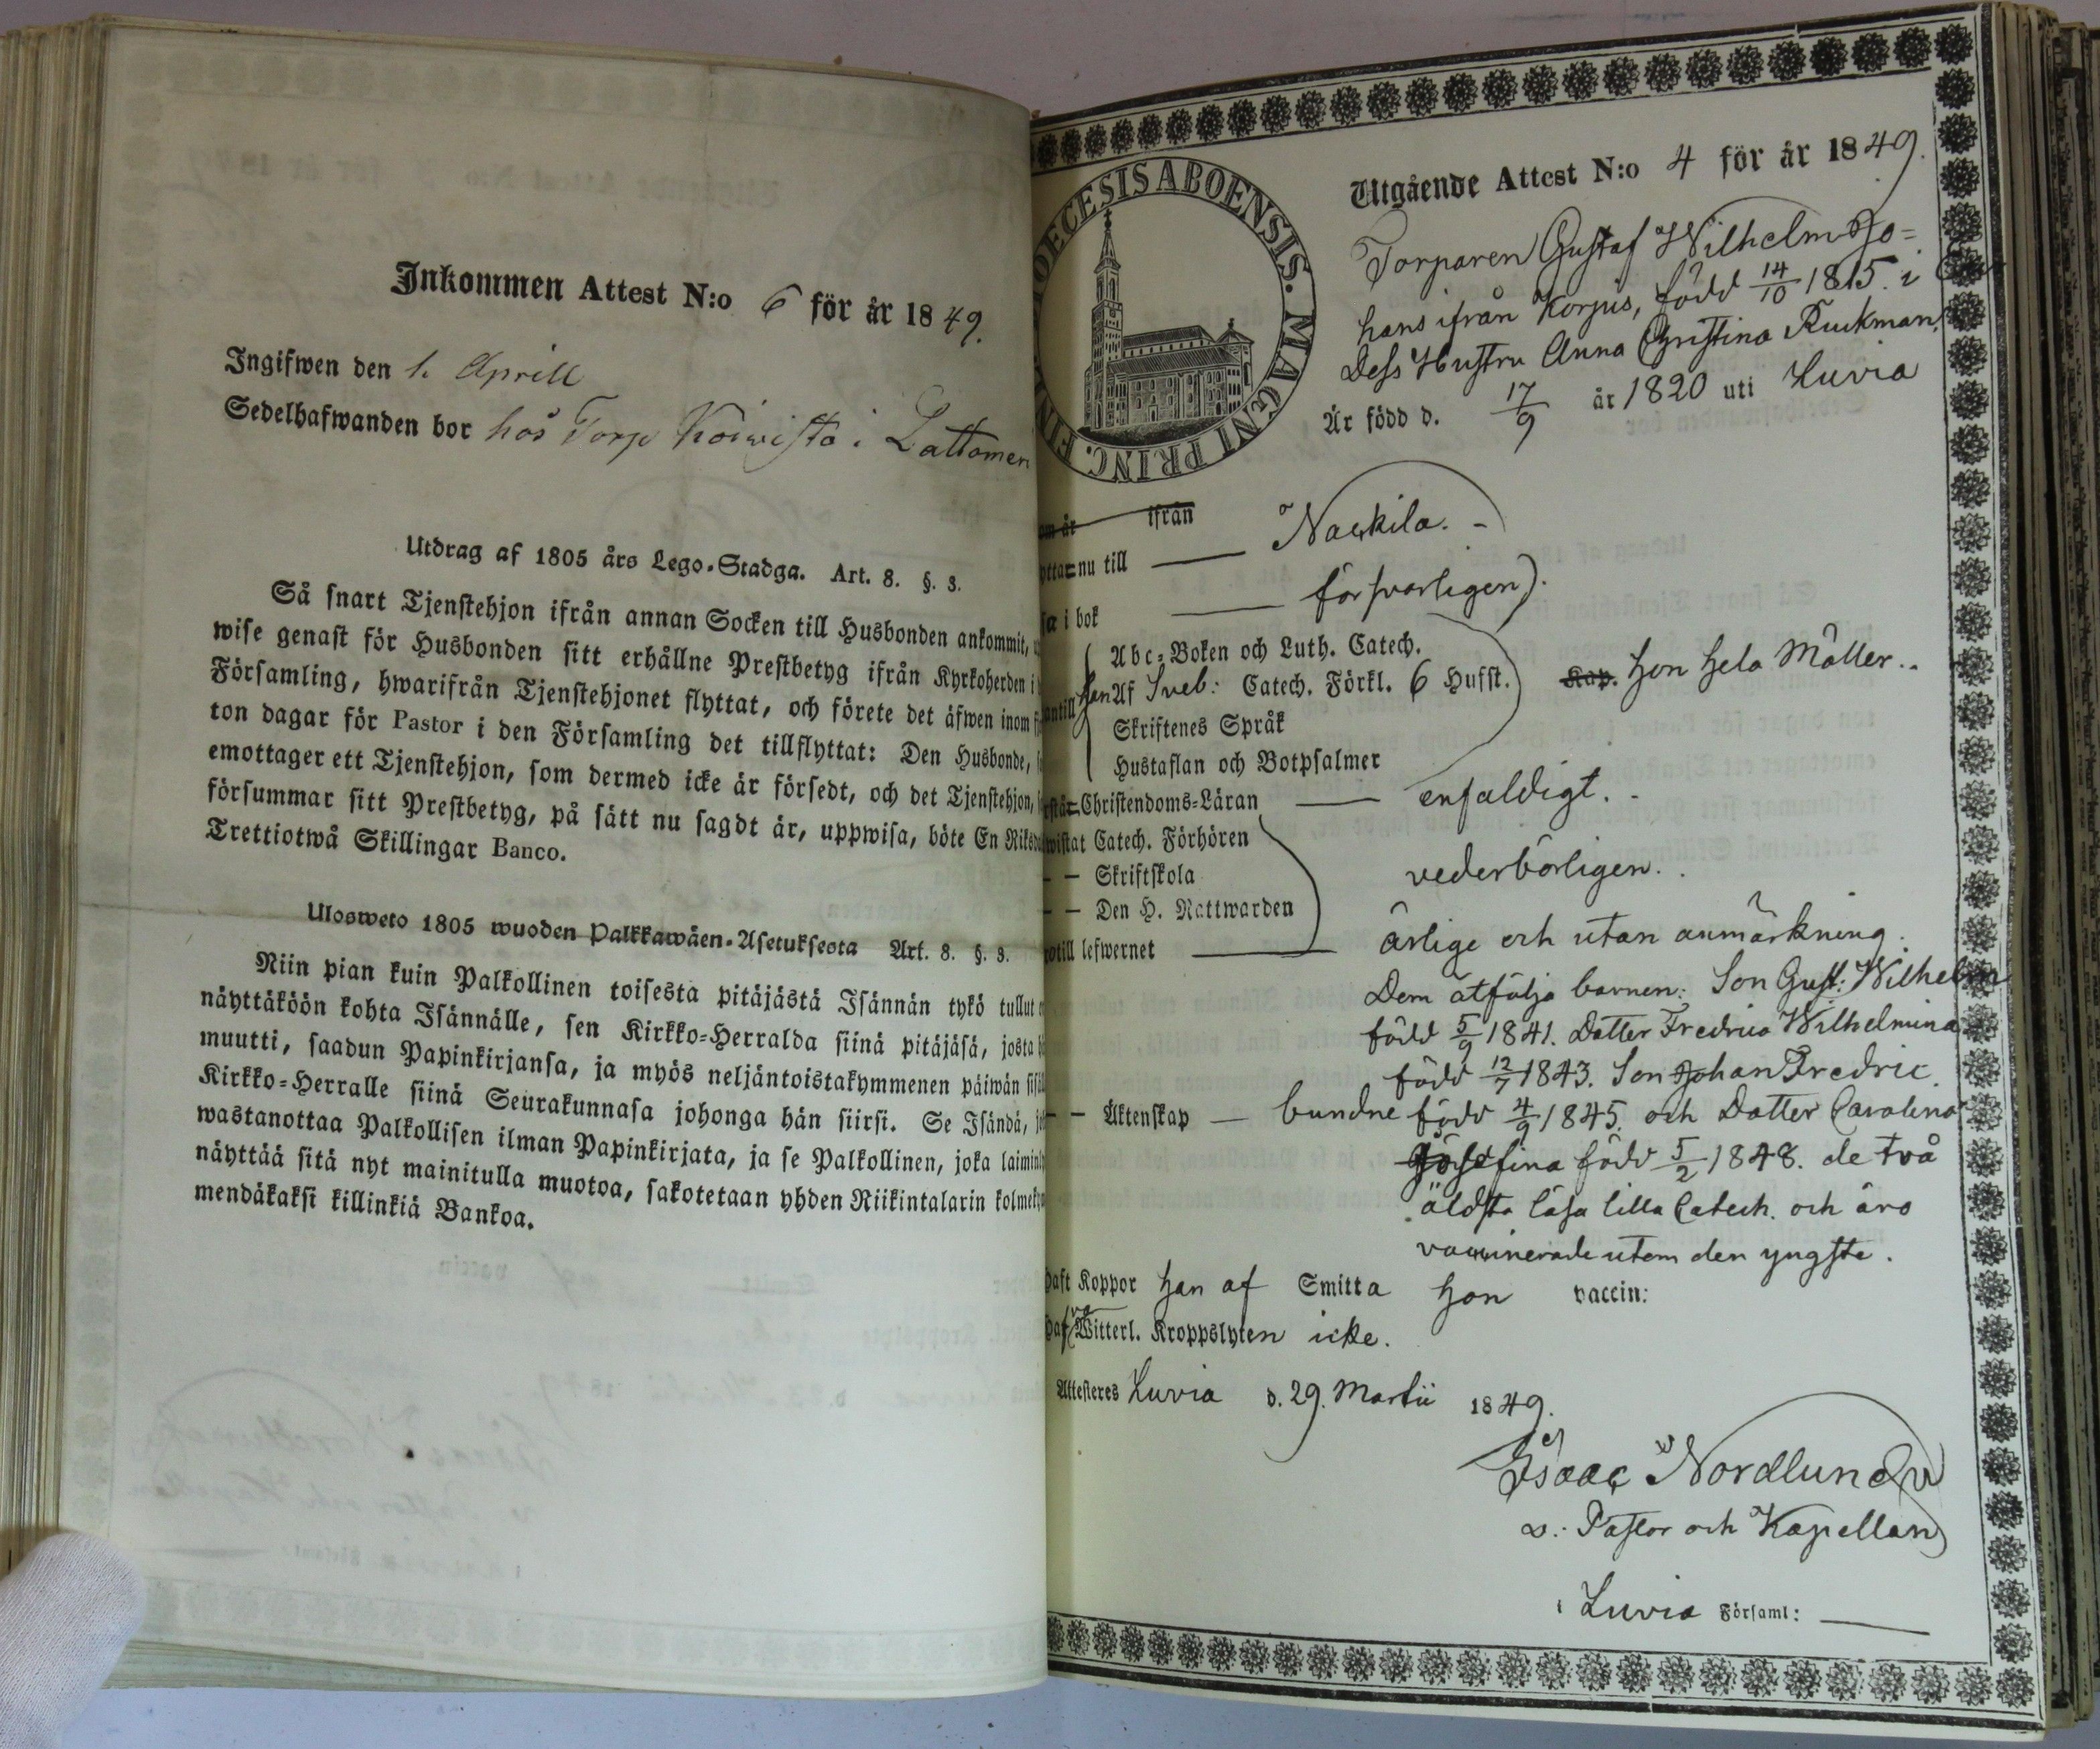 Inkommen Attest N:o 6 för år 1849.
Ingifwen den 1. Aprill
Sedelhafwanden bor hos Torp Koiwisto i Lattomeri
Utdrag af 1805 års Lego-Stadga. Art. 8. §. 3.
Så snart Tjenstehjon ifrån annan Socken till Husbonden ankommit,
wise genast för Husbonden sitt erhållne Prestbetyg ifrån Kyrkoherden i
Församling, hwarifrån Tjenstehjonet flyttat, och förete det äfwen inom
ton dagar för Pastor i den Församling det tillflyttat: Den Husbonde,
emottager ett Tjenstehjon, som dermed icke är försedt, och det Tjenstehjon,
försummar sitt Prestbetyg, på sätt nu sagdt är, uppwisa, böte En
Trettiotwå Skillingar Banco.
Ulosweto 1805 wuoden Palkkawäen-Asetuksesta Art. 8. §. 3.
Niin pian kuin Palkollinen toisesta pitäjästä Isännän tykö tullut
näyttäköön kohta Isännälle, sen Kirkko-Herralda siinä pitäjäsä, josta
muutti, saadun Papinkirjansa, ja myös neljäntoistakymmenen päiwän
Kirkko-Herralle siinä Seurakunnasa johonga hän siirsi. Se Isändä,
wastanottaa Palkollisen ilman Papinkirjata, ja se Palkollinen, joka
näyttää sitä nyt mainitulla muotoa, sakotetaan yhden Riikintalarin
mendäkaksi killinkiä Bankoa.
DIOECESIS ABOENSIS. MAGNI PRINC.
Utgående Attest N:o 4 för år 1849.
Torparen Gustaf Wilhelm Jo=
hans ifrån Korpus, född 14/10 1815. i
Dess Hustru Anna Christina Ruckman
Är född d. 17/9 år 1820 uti Luvia
ifrån
nu till — Nackila. -
i bok — försvarligen.
Abc-Boken och Luth. Catech.
han Af Sveb: Catech. Förkl. 6 Hufst. Kap. hon hela Möller..
Skriftenes Språk
Hustaflan och Botpsalmer
Christendoms-Läran — enfaldigt.
Catech. Förhören
— — Skriftskola vederbörligen.
— — Den H. Nattwarden
lefwernet — ärlige och utan anmärkning.
Dem åtfölja barnen: Son Gust: Wilhelm
född 5/9 1841. Dotter Fredrica Wilhelmina
född 12/7 1843. Son Johan Fredric
— — Äktenskap — bundne född 4/9 1845. och Dotter Carolina
Josefina född 5/2 1848. de två
äldsta läsa lilla Catech. och äro
vaccinerade utom den yngste.
haft Koppor han af Smitta hon vaccin:
Witterl. Kroppslyten icke.
Attesteres Luvia d. 29. Martii 1849.
Isaac Nordlund
v. Pastor och Kapellan
i Luvia Församl: —